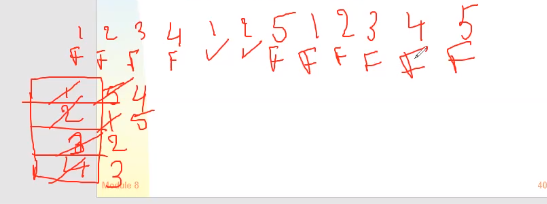 1 2 3 4 1 2 5 1 2 3 4 5
F F F F ✓ ✓ F F F F F F
1 5 4
2 1 5
3 2
4 3
Module 8 40